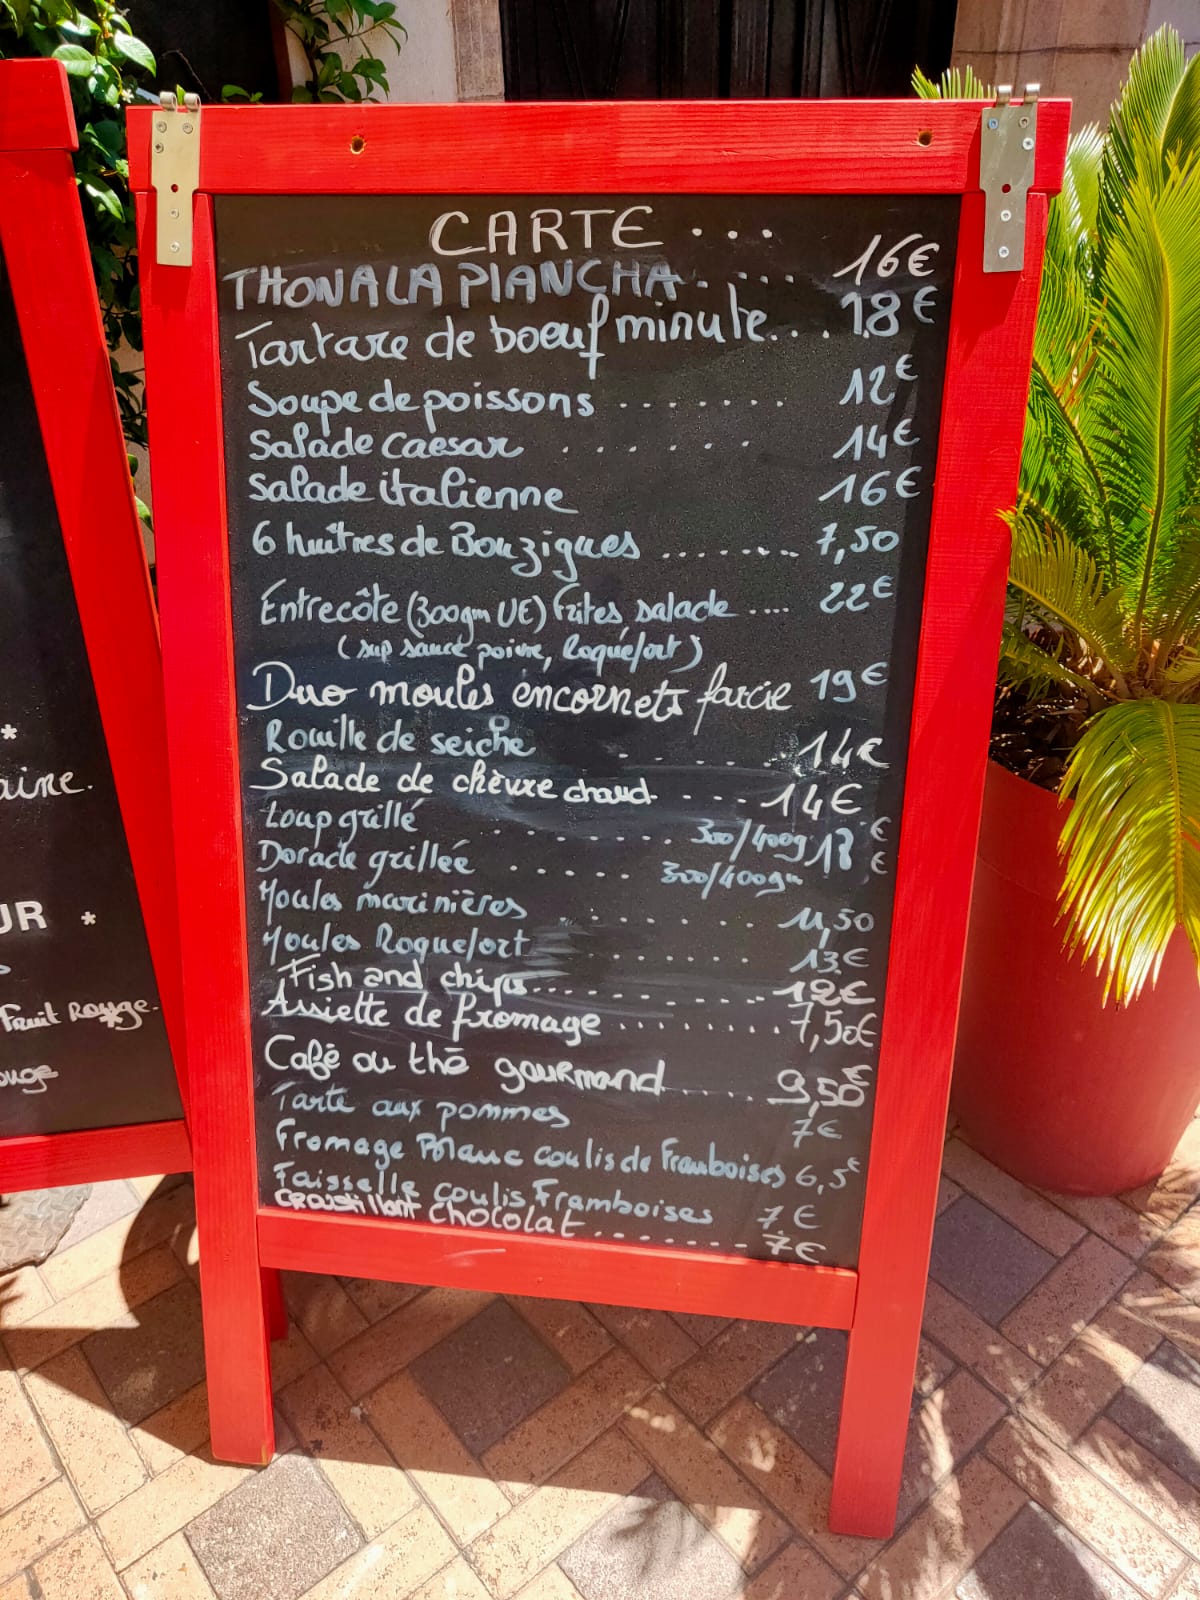 CARTE ...
THON A LA PLANCHA ..... 16€
Tartare de boeuf minute... 18€
Soupe de poissons ....... 12€
Salade caesar ...... 14€
Salade italienne 16€
6 huîtres de Bouzigues ........ 7,50
Entrecôte (300gm UE) frites, salade .... 22€
(sup sauce poivre, Roquefort)
Duo moules encornets farcie 19€
Rouille de seiche ..... 14€
Salade de chèvre chaud .... 14€
Loup grillé ...... 300/400g 18€
Dorade grillée ..... 300/400gm €
Moules marinières ...... 11,50
Moules Roquefort ...... 13€
Fish and chips ........... 12€
Assiette de fromage ........ 7,50€
Café ou thé gourmand ..... 9,50€
Tarte aux pommes 7€
Fromage Blanc coulis de Framboises 6,5€
Faisselle coulis Framboises 7€
croustillant chocolat ....... 7€
*
aine.
UR *
Fruit Rouge.
ouge